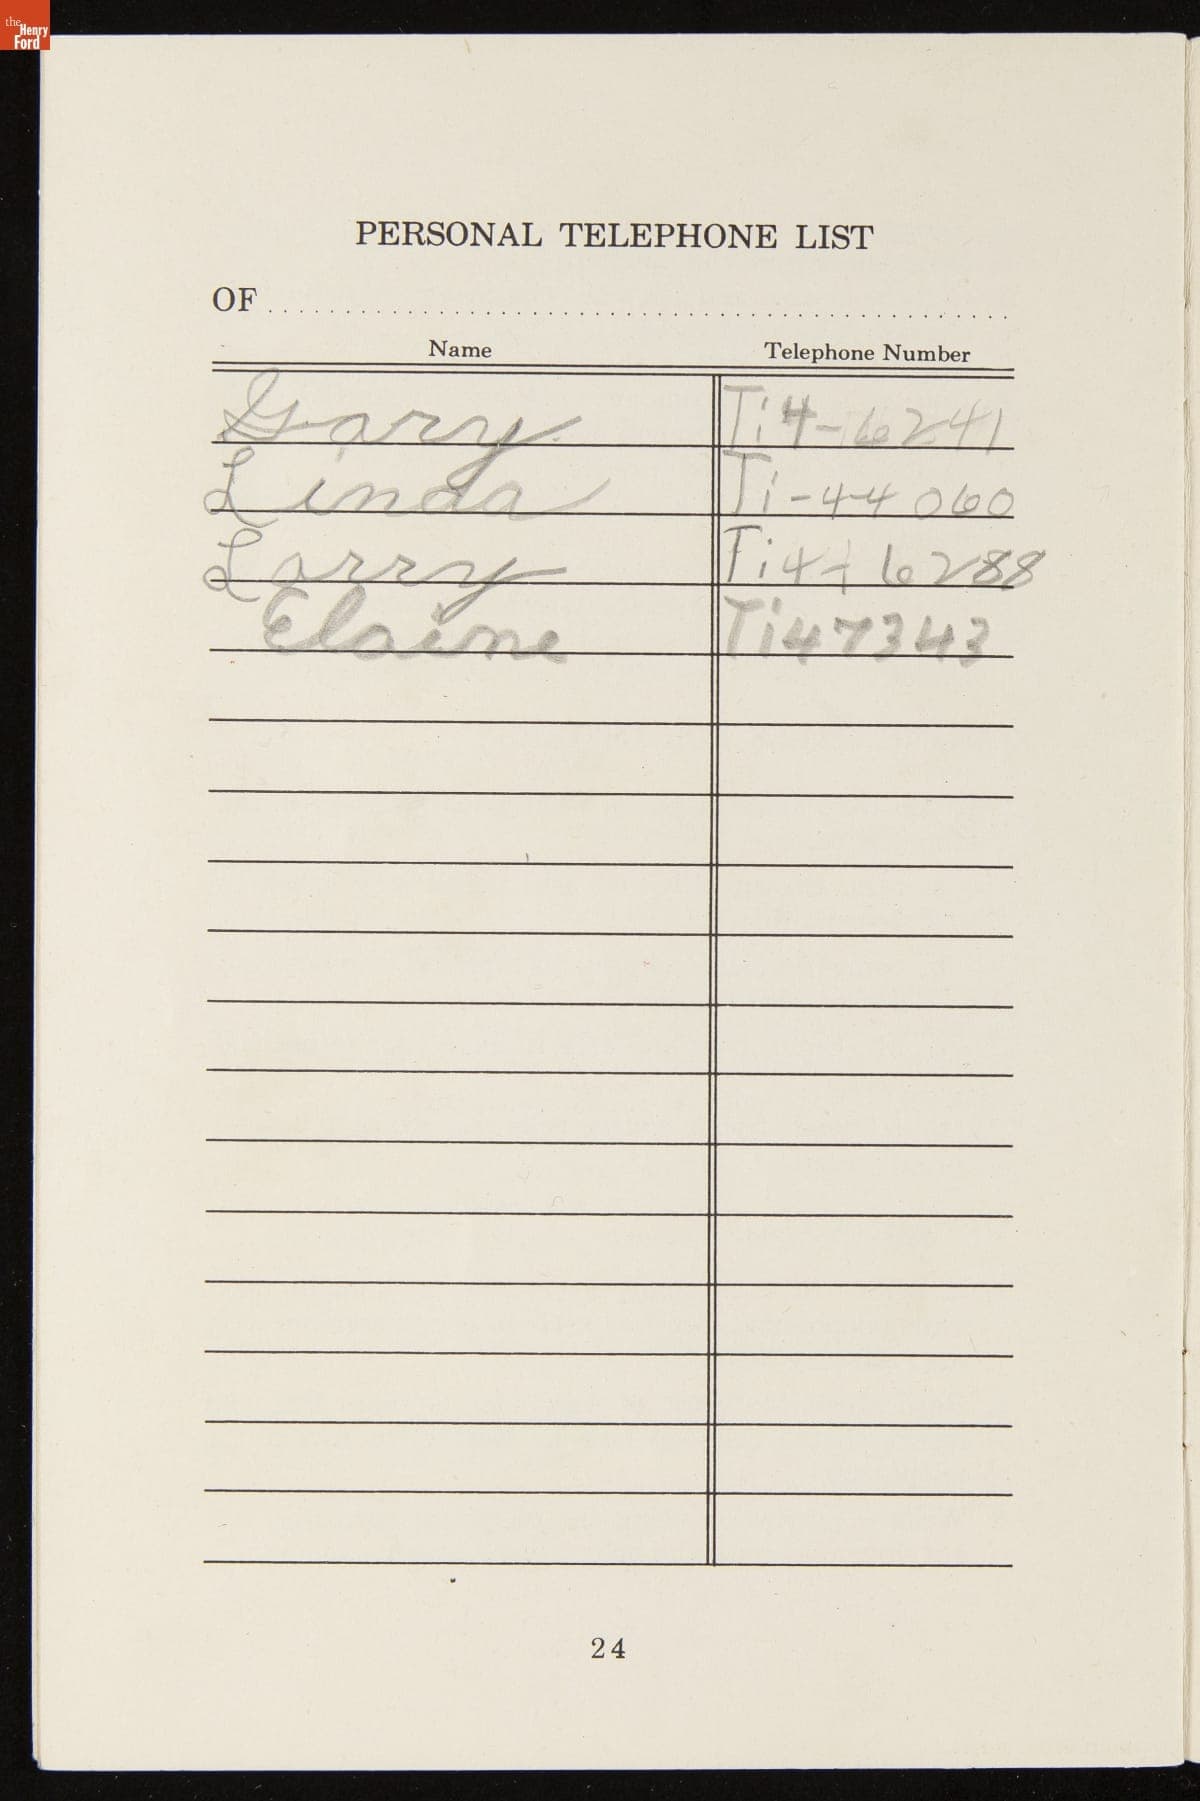 the
Henry
Ford
PERSONAL TELEPHONE LIST
OF
Name Telephone Number
Gary Ti4-6241
Linda Ti-44060
Larry Ti4-6288
Elaine Ti47343
24